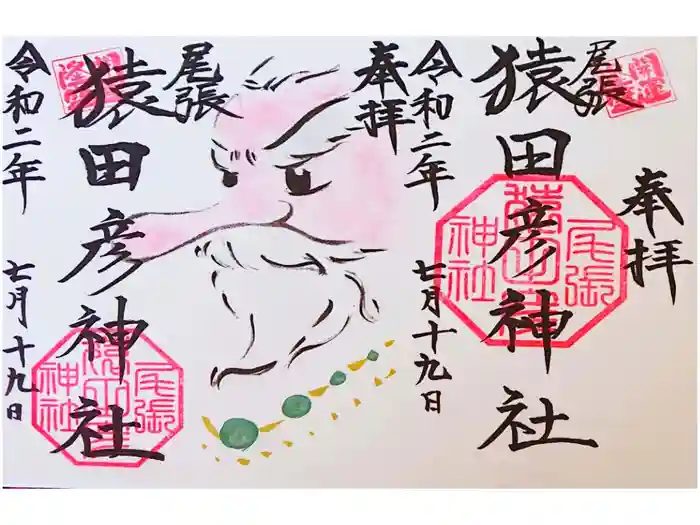 奉拝
尾張
猿田彦神社
令和二年 七月十九日
開運
尾張
神社
奉拝
尾張
猿田彦神社
令和二年 七月十九日
尾張
神社